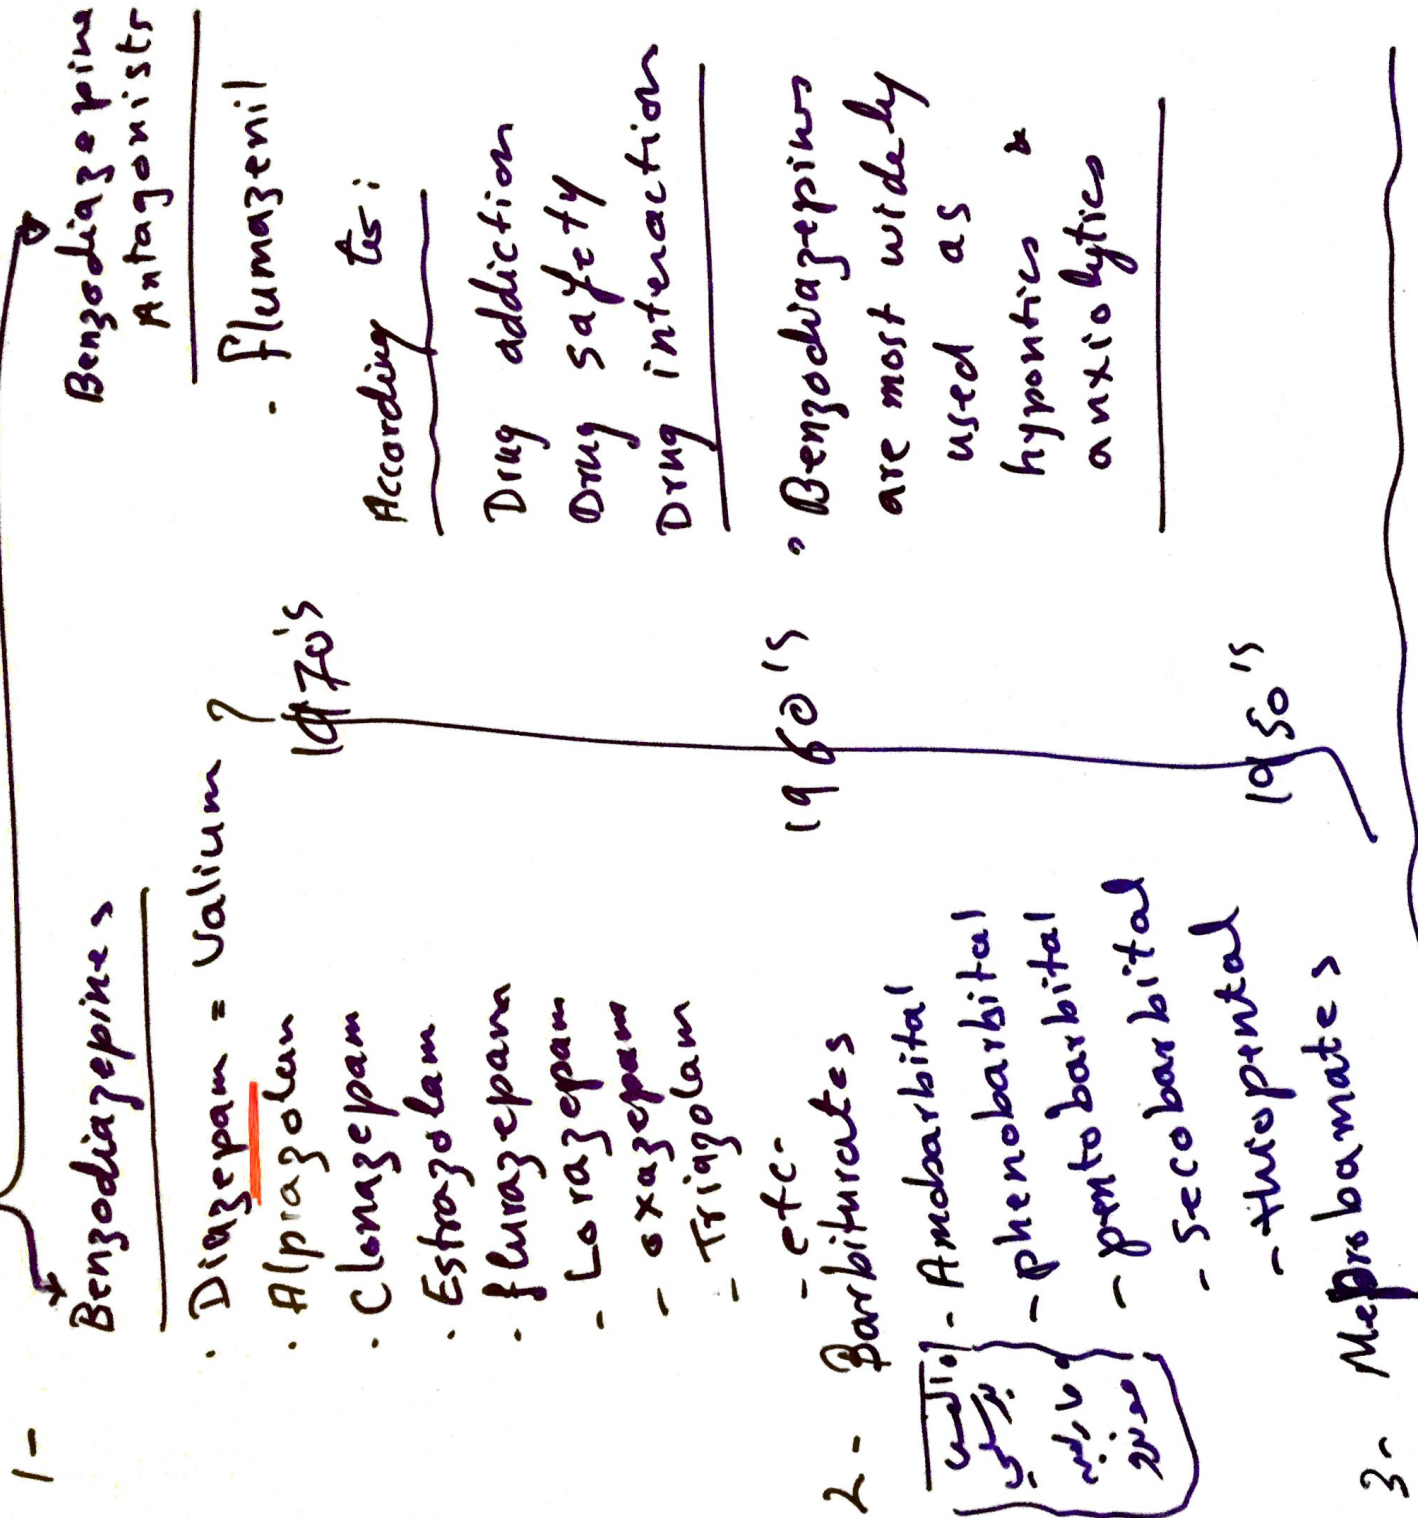 1-
Benzodiazepines
· Diazepam = Valium ?
· Alprazolam
· Clonazepam
· Estrazolam
· flurazepam
- Lorazepam
- oxazepam
- Triazolam
- etc.
2- Barbiturates
- Amobarbital
- phenobarbital
- pentobarbital
- secobarbital
- thiopental
3- Meprobamates
1970's
1960's
1950's
Benzodiazepine
Antagonists
· flumazenil
According to:
Drug addiction
Drug safety
Drug interaction
· Benzodiazepines
are most widely
used as
hypontics &
anxiolytics